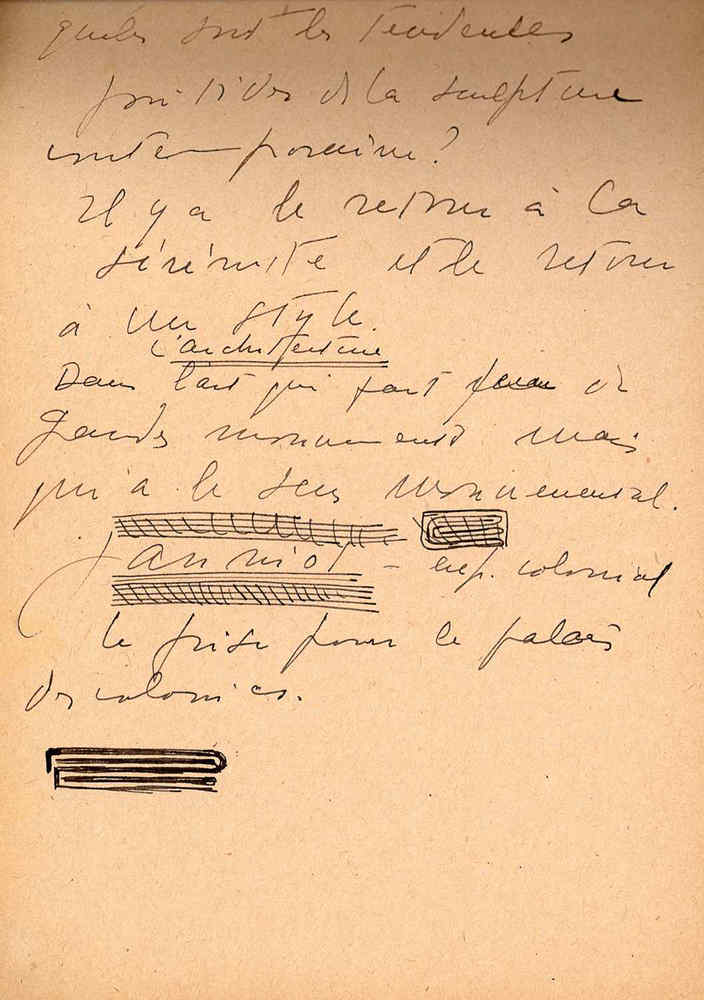 quelles sont les tendences
de la sculpture
contemporaine?
Il y a le retour à la
sérénité et le retour
à un style.
L'architecture
Dans l'art qui fait de
grandes monuments mais
qui a le sens monumental.
Janniot - exp. colonial
le frise pour le palais
des colonies.